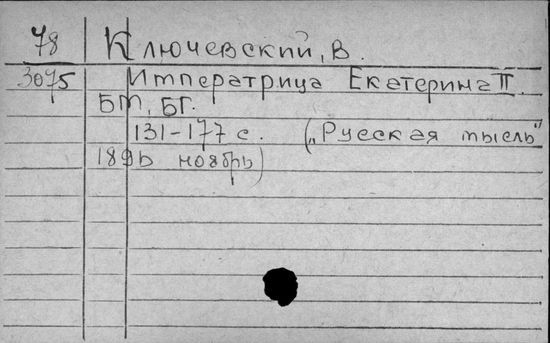 78 Ключевский, В.
3075 Императрица Екатерина II.
БМ, БГ.
131-177 с. („Русская мысль"
1896 ноябрь)